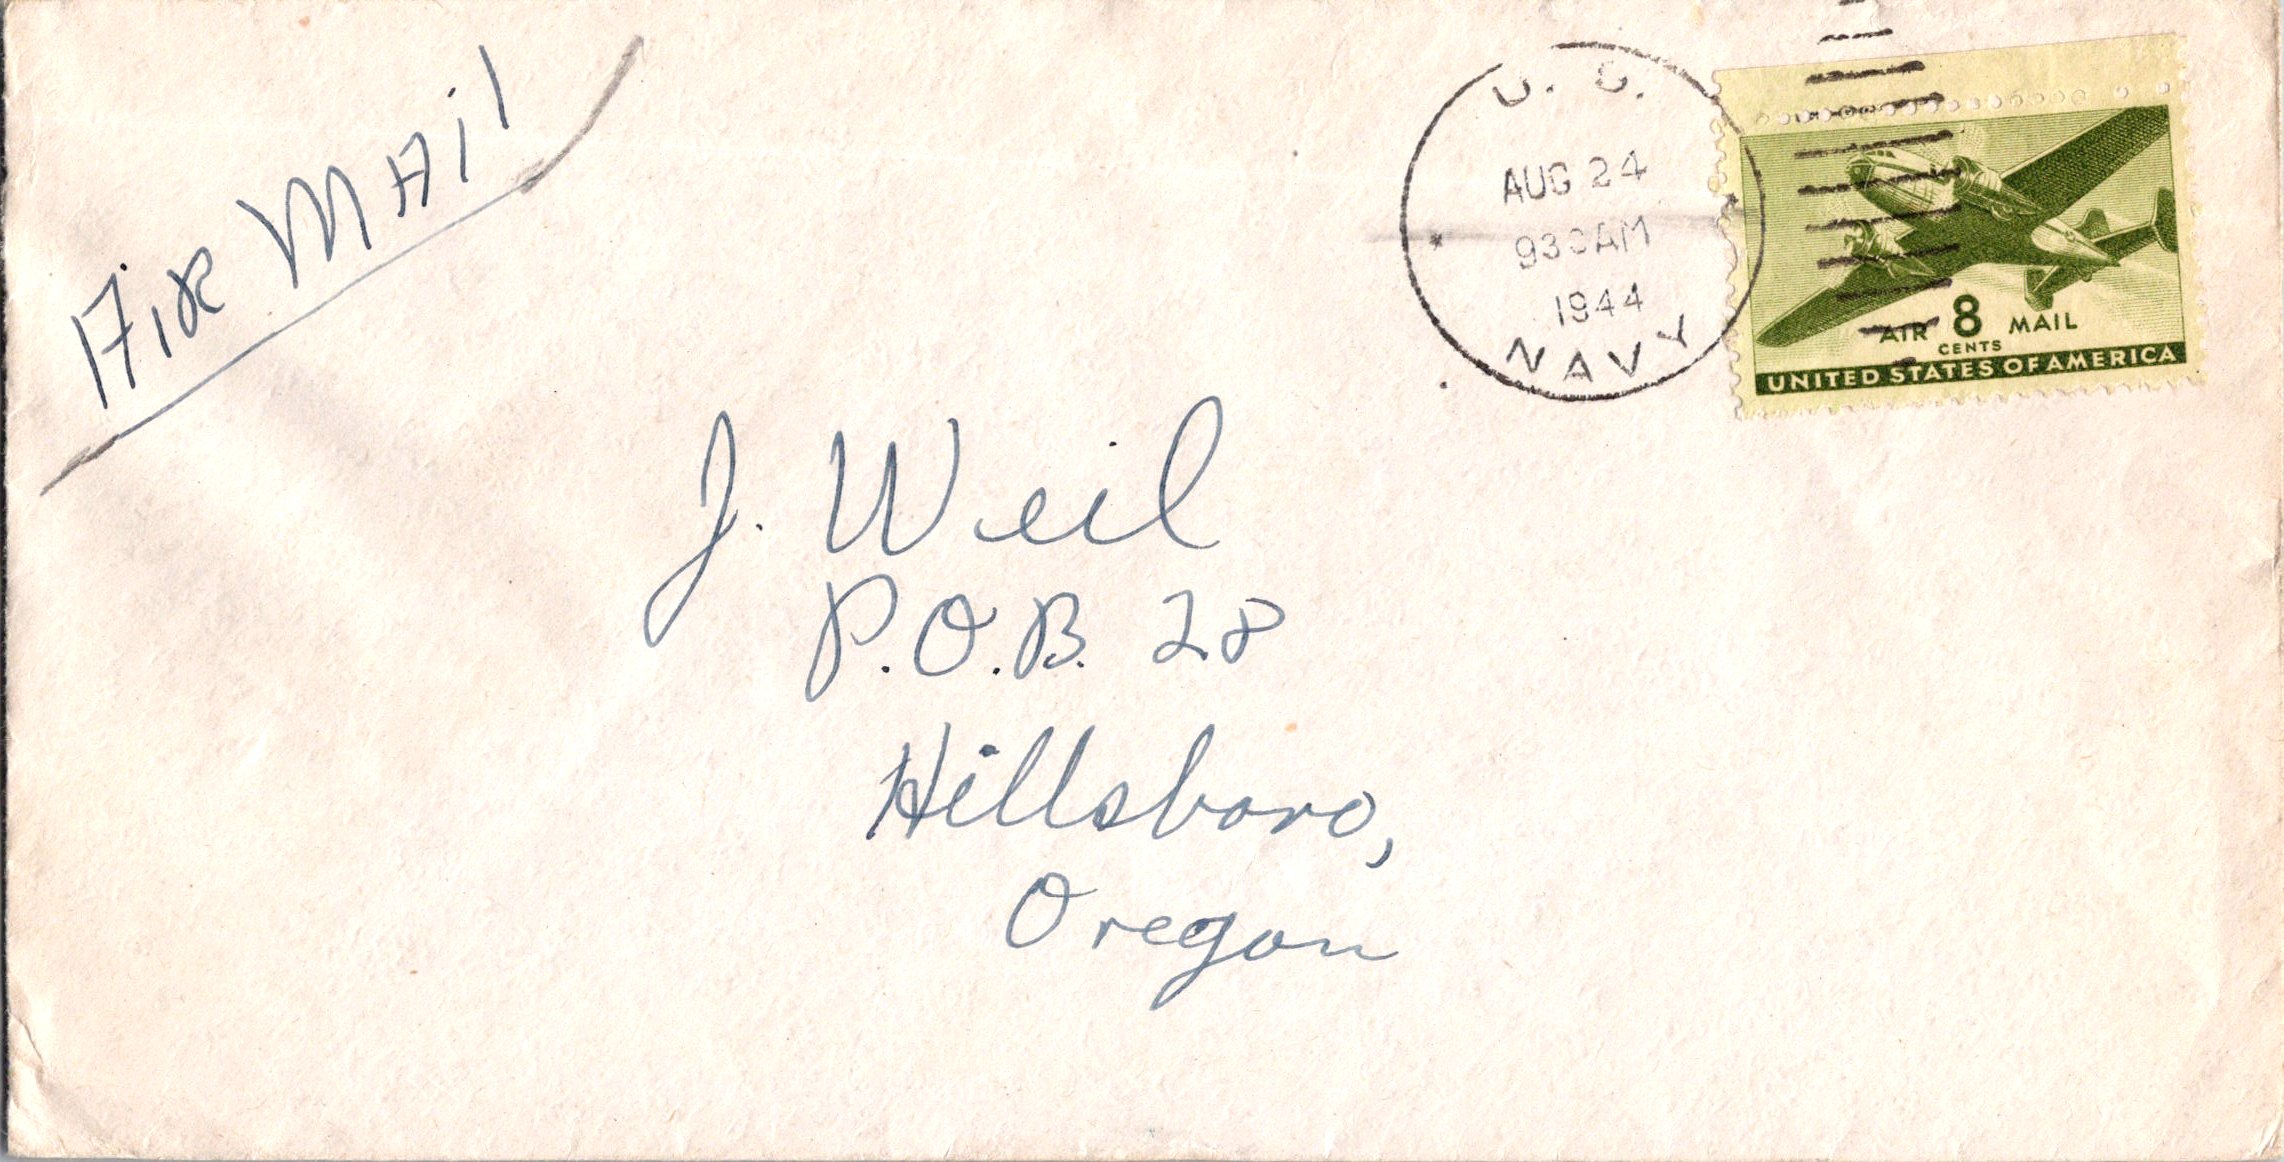 Air Mail
U. S.
AUG 24
930AM
1944
NAVY
AIR 8 MAIL
CENTS
UNITED STATES OF AMERICA
J. Weil
P.O.B. 28
Hillsboro,
Oregon